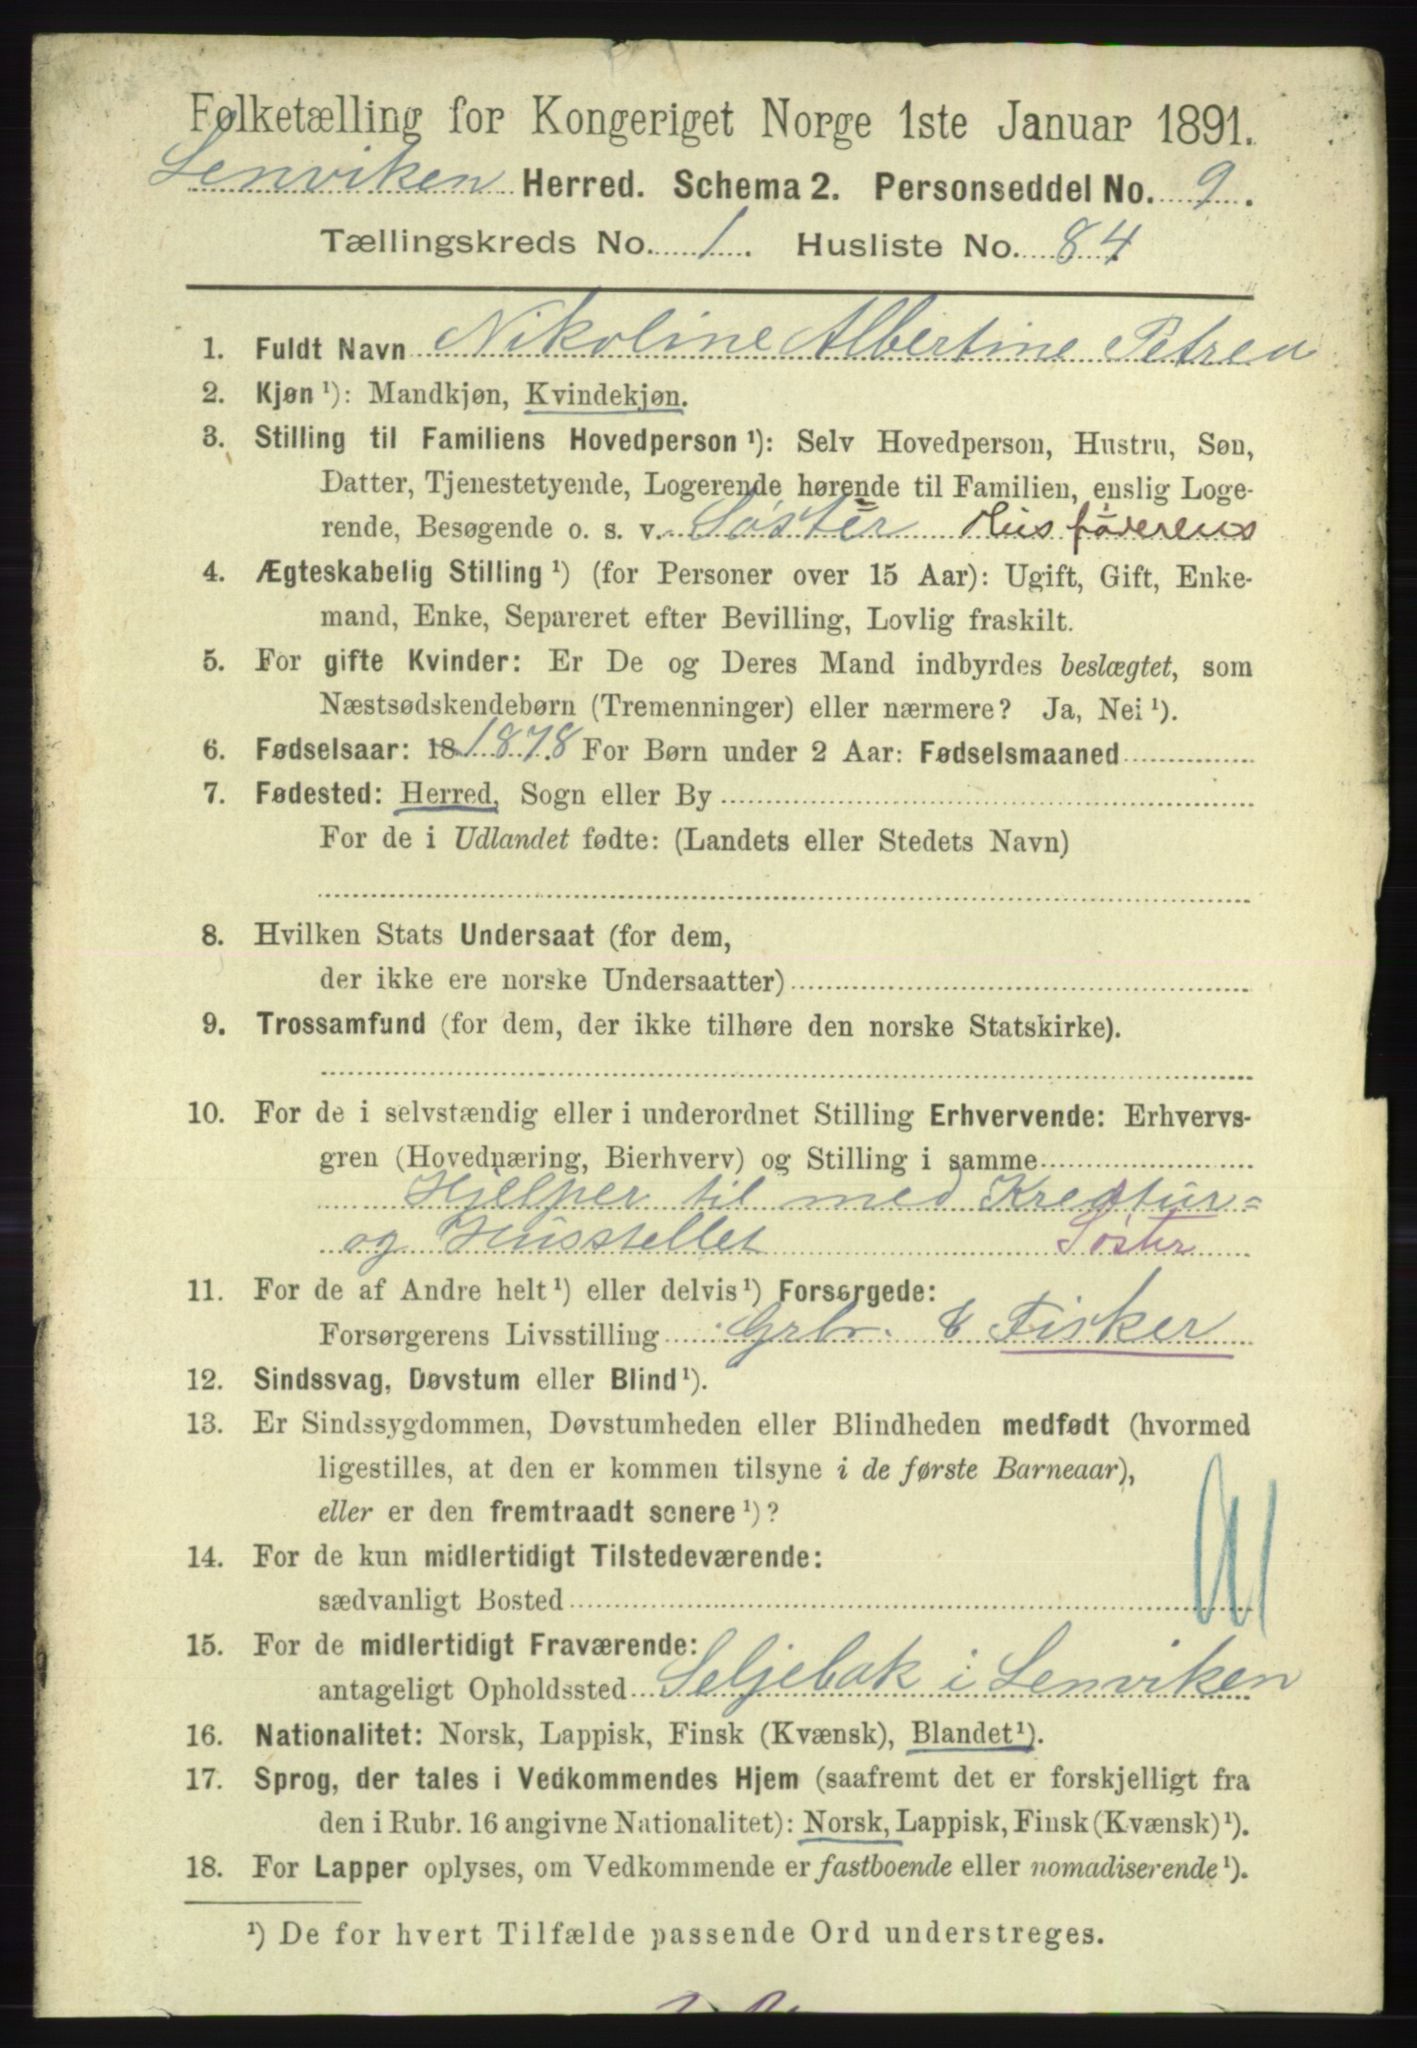 Folketælling for Kongeriget Norge 1ste Januar 1891.
Lenviken Herred. Schema 2. Personseddel No. 9.
Tællingskreds No. 1. Husliste No. 84
1. Fuldt Navn Nikoline Albertine Petrea
2. Kjøn ¹): Mandkjøn, Kvindekjøn.
3. Stilling til Familiens Hovedperson ¹): Selv Hovedperson, Hustru, Søn,
Datter, Tjenestetyende, Logerende hørende til Familien, enslig Loge-
rende, Besøgende o. s. v. Søster Husfaderens
4. Ægteskabelig Stilling ¹) (for Personer over 15 Aar): Ugift, Gift, Enke-
mand, Enke, Separeret efter Bevilling, Lovlig fraskilt.
5. For gifte Kvinder: Er De og Deres Mand indbyrdes beslægtet, som
Næstsødskendebørn (Tremenninger) eller nærmere? Ja, Nei ¹).
6. Fødselsaar: 18 1878 For Børn under 2 Aar: Fødselsmaaned
7. Fødested: Herred, Sogn eller By
For de i Udlandet fødte: (Landets eller Stedets Navn)
8. Hvilken Stats Undersaat (for dem,
der ikke ere norske Undersaatter)
9. Trossamfund (for dem, der ikke tilhøre den norske Statskirke).
10. For de i selvstændig eller i underordnet Stilling Erhvervende: Erhvervs-
gren (Hovednæring, Bierhverv) og Stilling i samme
Hjelper til med Kreatur-
og Husstellet Søster
11. For de af Andre helt ¹) eller delvis ¹) Forsørgede:
Forsørgerens Livsstilling Grbr. & Fisker
12. Sindssvag, Døvstum eller Blind ¹).
13. Er Sindssygdommen, Døvstumheden eller Blindheden medfødt (hvormed
ligestilles, at den er kommen tilsyne i de første Barneaar),
eller er den fremtraadt senere ¹)?
14. For de kun midlertidigt Tilstedeværende:
sædvanligt Bosted
15. For de midlertidigt Fraværende:
antageligt Opholdssted Seljebak i Lenviken
16. Nationalitet: Norsk, Lappisk, Finsk (Kvænsk), Blandet ¹).
17. Sprog, der tales i Vedkommendes Hjem (saafremt det er forskjelligt fra
den i Rubr. 16 angivne Nationalitet): Norsk, Lappisk, Finsk (Kvænsk) ¹).
18. For Lapper oplyses, om Vedkommende er fastboende eller nomadiserende ¹).
¹) De for hvert Tilfælde passende Ord understreges.